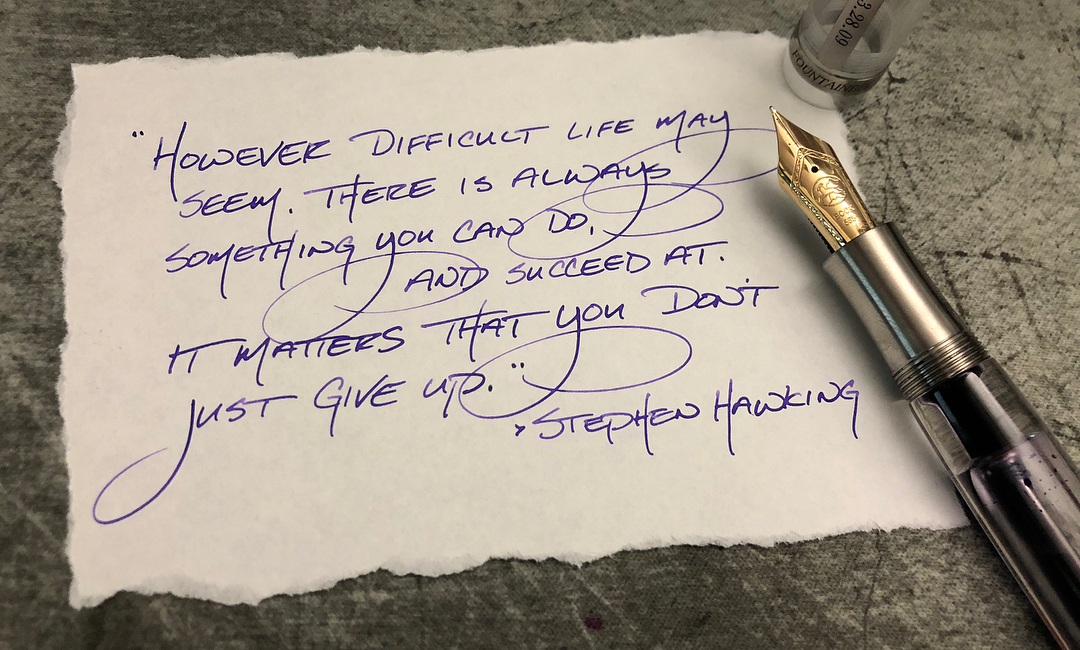 3.28.09
FOUNTAIN
"HOWEVER DIFFICULT LIFE MAY
SEEM. THERE IS ALWAYS
SOMETHING YOU CAN DO,
AND SUCCEED AT.
IT MATTERS THAT YOU DON'T
JUST GIVE UP."
STEPHEN HAWKING